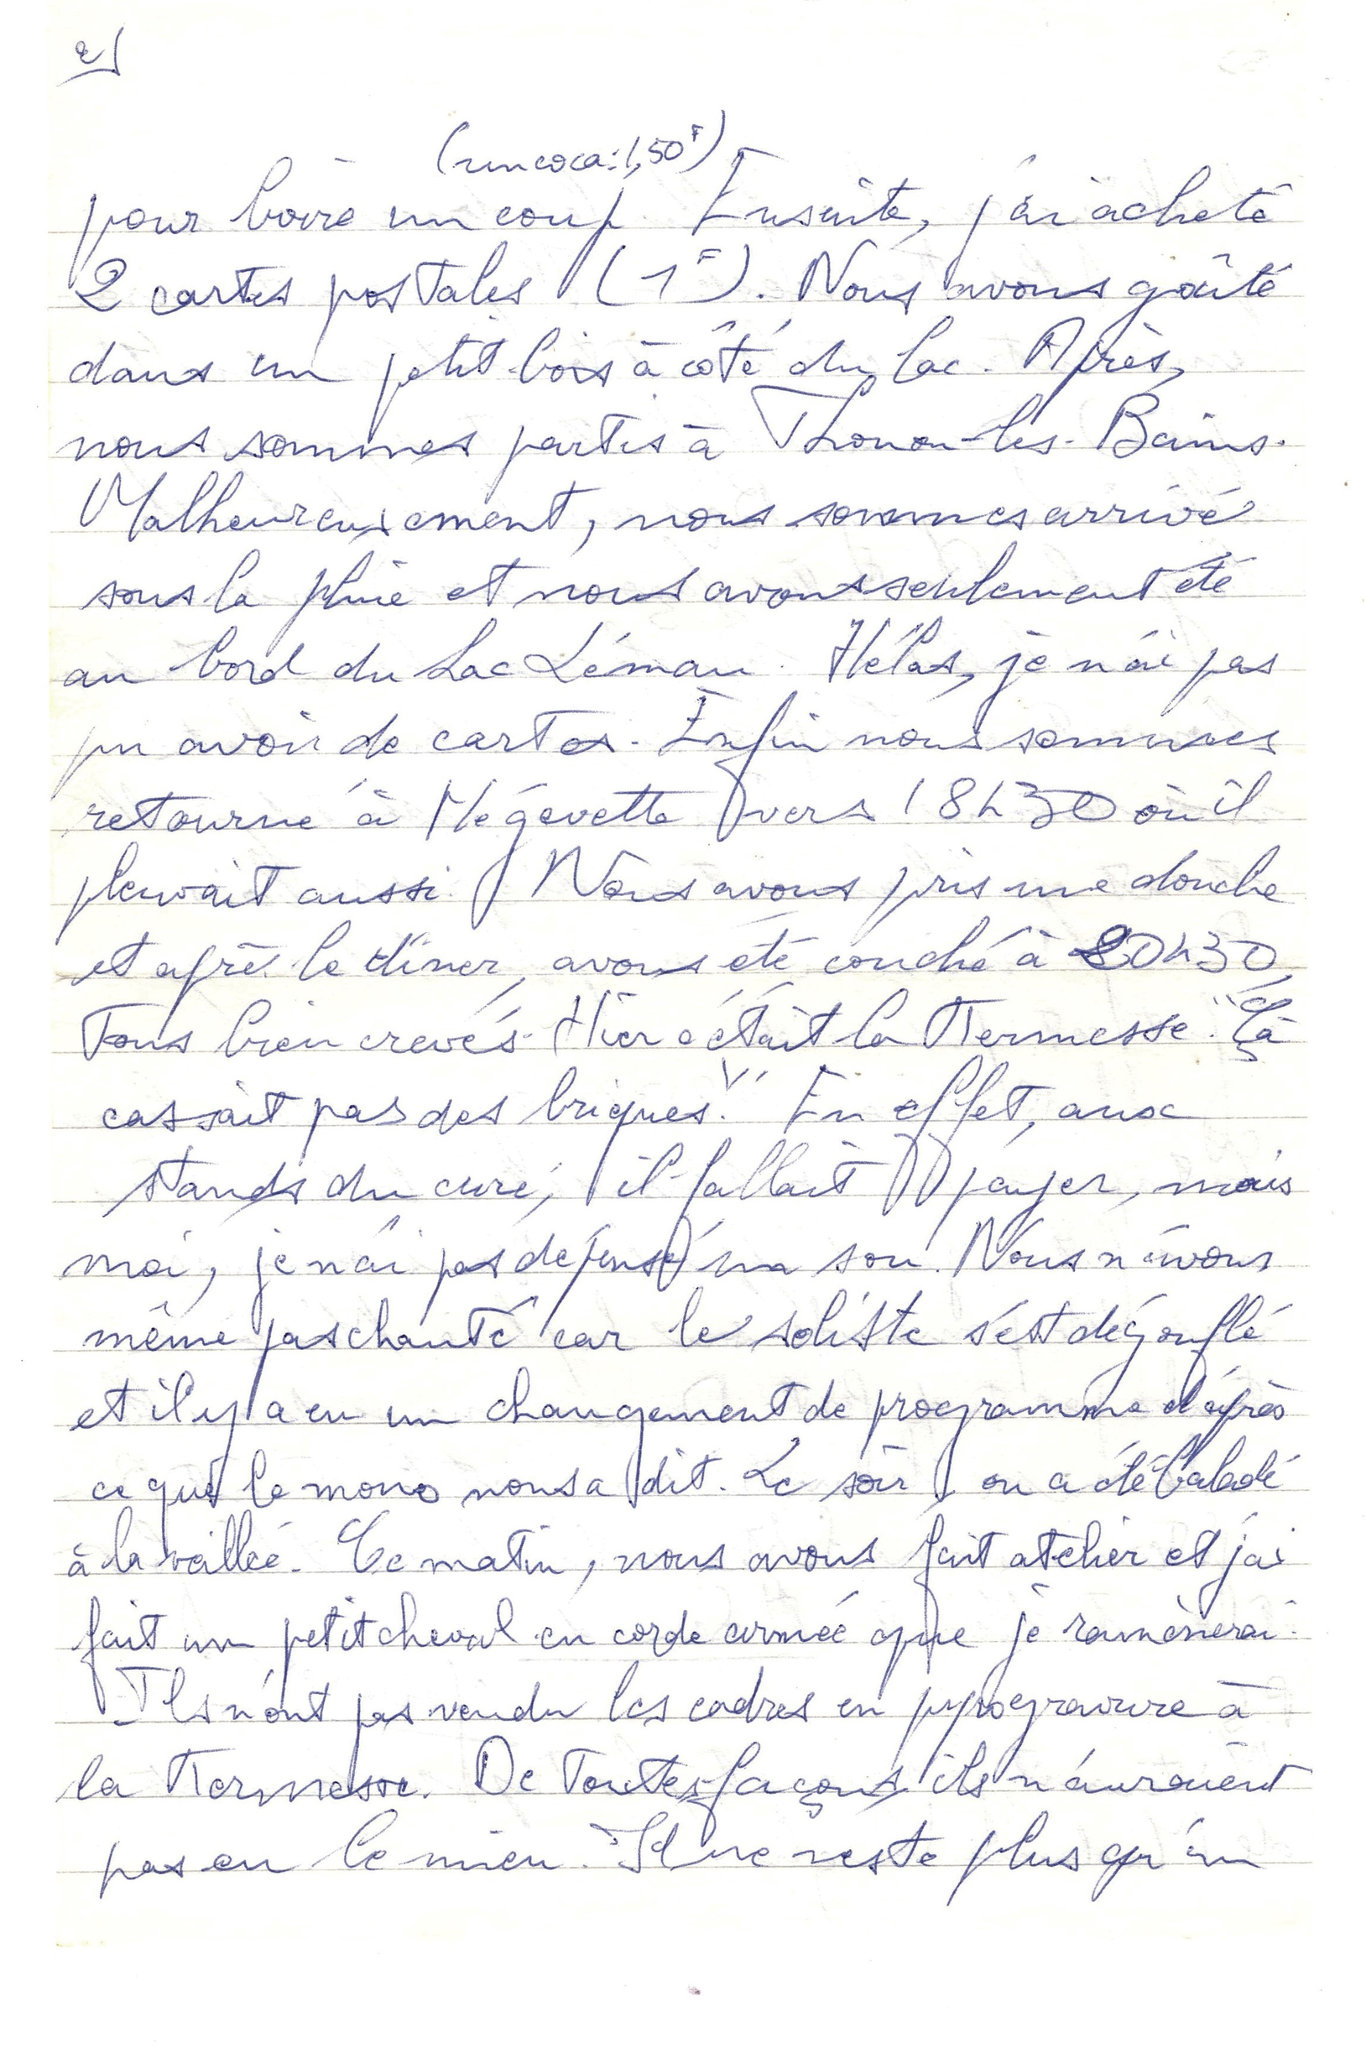 2)
(un coca : 1,50F)
pour boire un coup. Ensuite, j'ai acheté
2 cartes postales (1F). Nous avons goûté
dans un petit bois à côté du lac. Après,
nous sommes partis à Thonon-les-Bains.
Malheureusement, nous sommes arrivé
sous la pluie et nous avons seulement été
au bord du Lac Léman. Hélas, je n'ai pas
pu avoir de cartes. Enfin nous sommes
retourné à Mégevette vers 18h30 où il
pleuvait aussi. Nous avons pris une douche
et après le dîner, avons été couché à 20h30,
Tous bien crevés. Hier c'était la Kermesse. "Çà
cassait pas des briques!" En effet, aux
stands du curé, il fallait payer, mais
moi, je n'ai pas dépensé un sou. Nous n'avons
même pas chanté car le soliste s'est dégonflé
et il y a eu un changement de programme d'après
ce que le mono nous a dit. Le soir, on a été baladé
à la veillée. Ce matin, nous avons fait atelier et j'ai
fait un petit cheval en corde armée que je ramènerai.
Ils n'ont pas vendu les cadres en pyrogravure à
la Kermesse. De toutes façons, ils n'auraient
pas eu le mien. Il ne reste plus qu'un